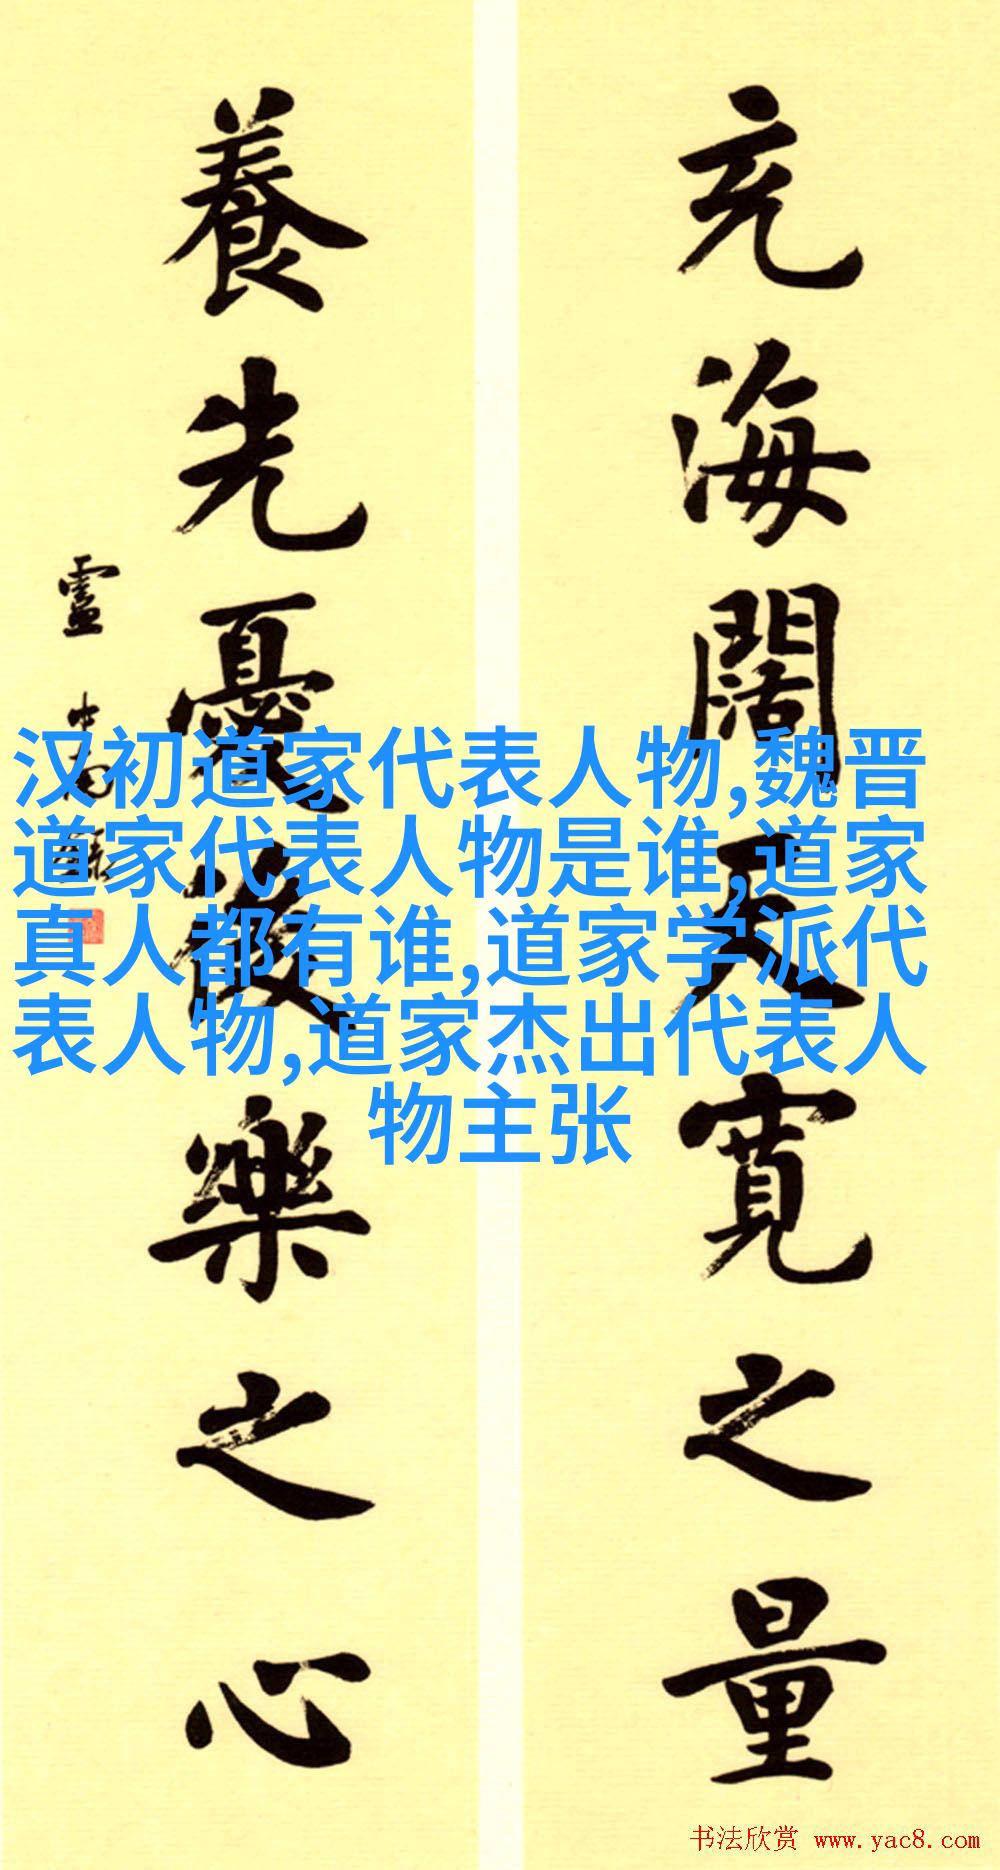 充海闊天寬之量
養先憂後樂之心
汉初道家代表人物,魏晋
道家代表人物是谁,道家
真人都有谁,道家学派代
表人物,道家杰出代表人
物主张
书法欣赏 www.yac8.com